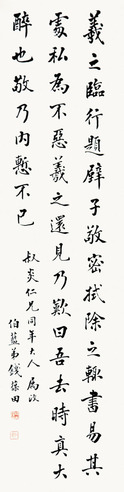 羲之臨行題壁子敬密拭除之輙書易其
處私為不惡羲之還見乃歎曰吾去時真大
醉也敬乃內慙不已
叔炎仁兄同年大人屬政
伯蓝弟錢葆田